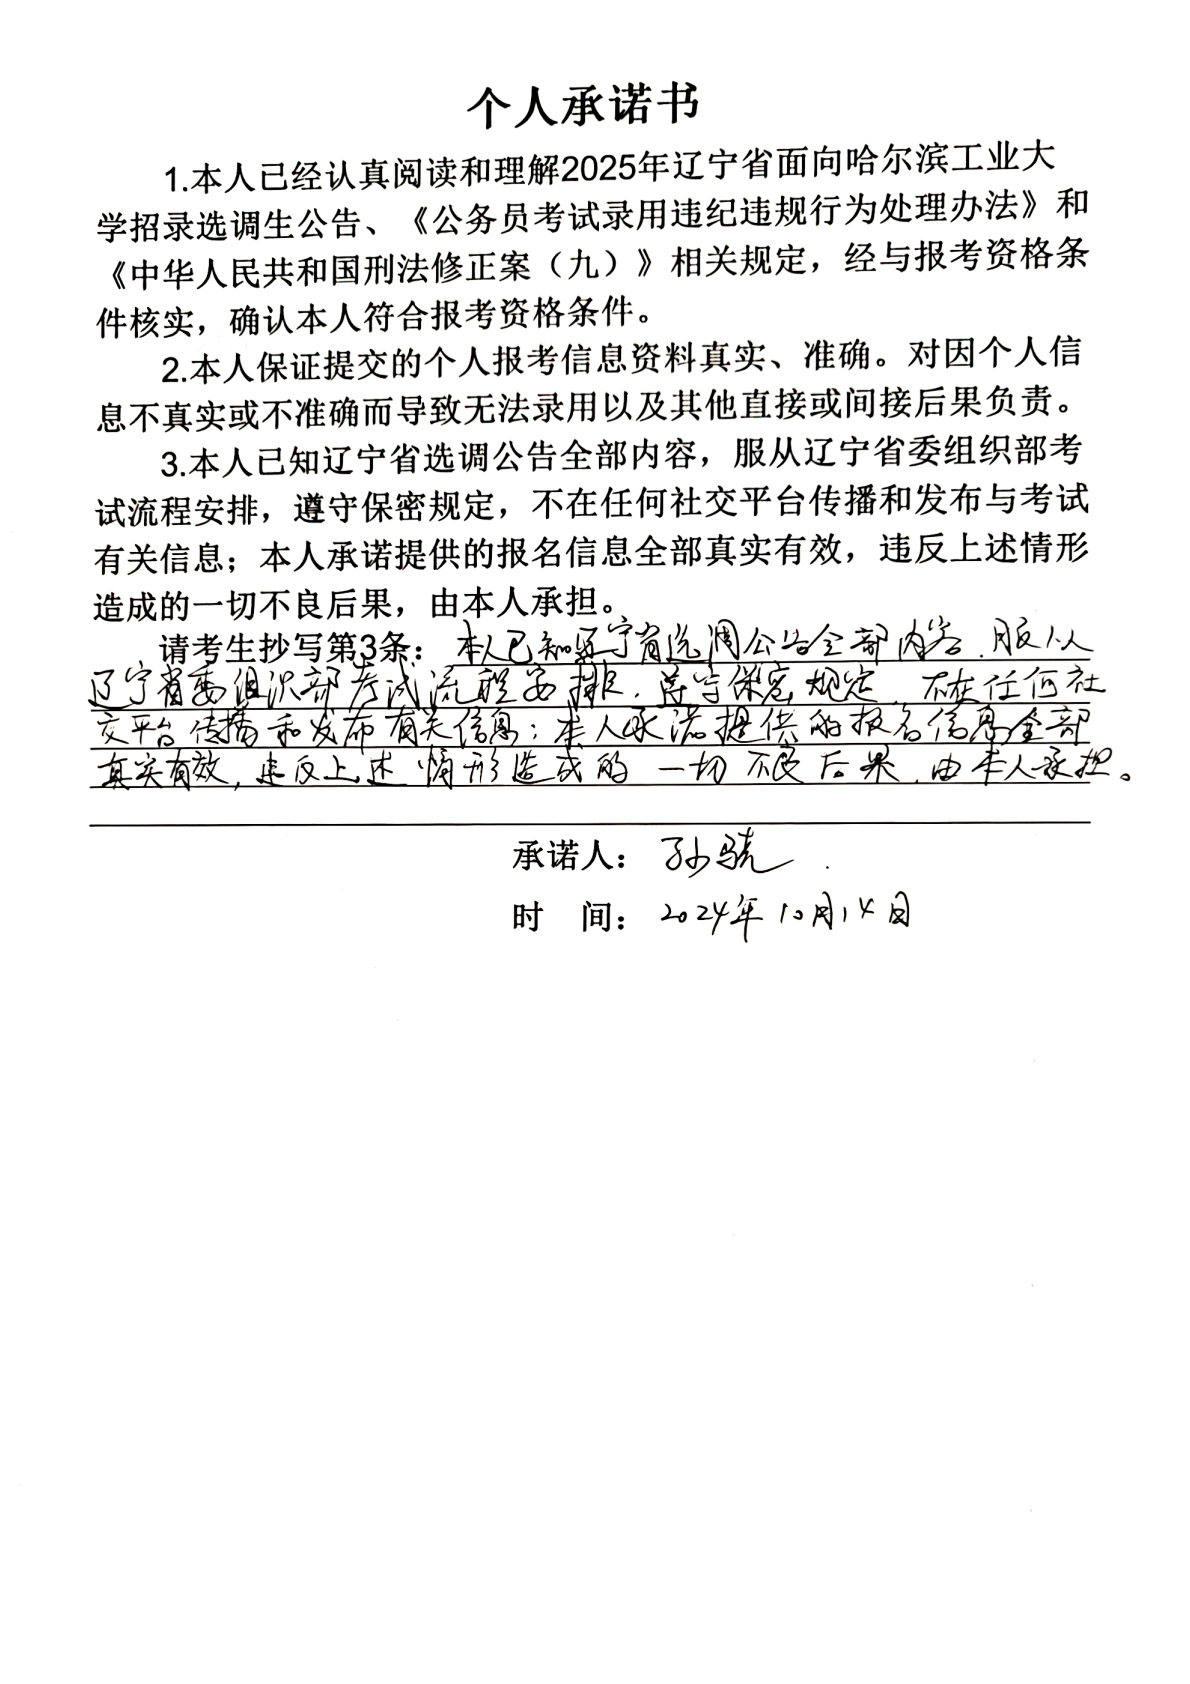 个人承诺书
1.本人已经认真阅读和理解2025年辽宁省面向哈尔滨工业大
学招录选调生公告、《公务员考试录用违纪违规行为处理办法》和
《中华人民共和国刑法修正案（九）》相关规定，经与报考资格条
件核实，确认本人符合报考资格条件。
2.本人保证提交的个人报考信息资料真实、准确。对因个人信
息不真实或不准确而导致无法录用以及其他直接或间接后果负责。
3.本人已知辽宁省选调公告全部内容，服从辽宁省委组织部考
试流程安排，遵守保密规定，不在任何社交平台传播和发布与考试
有关信息；本人承诺提供的报名信息全部真实有效，违反上述情形
造成的一切不良后果，由本人承担。
请考生抄写第3条：本人已知辽宁省选调公告全部内容，服从
辽宁省委组织部考试流程安排，遵守保密规定，不在任何社
交平台传播和发布有关信息；本人承诺提供的报名信息全部
真实有效，违反上述情形造成的一切不良后果，由本人承担。
承诺人：孙骁
时 间：2024年10月14日